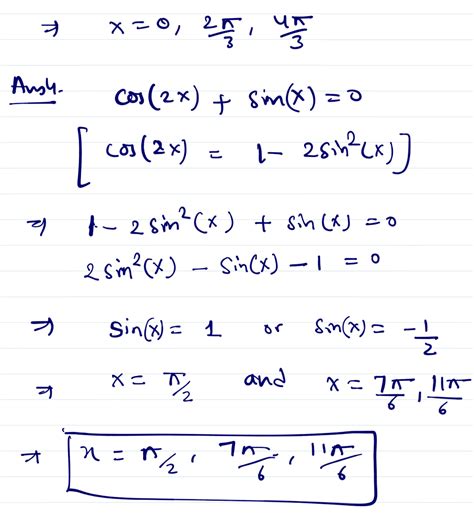 ⇒ x = 0, 2π/3, 4π/3
Ans4. cos(2x) + sin(x) = 0
[cos(2x) = 1 - 2sin²(x)]
⇒ 1 - 2sin²(x) + sin(x) = 0
2sin²(x) - sin(x) - 1 = 0
⇒ sin(x) = 1 or sin(x) = -1/2
⇒ x = π/2 and x = 7π/6, 11π/6
⇒ x = π/2, 7π/6, 11π/6